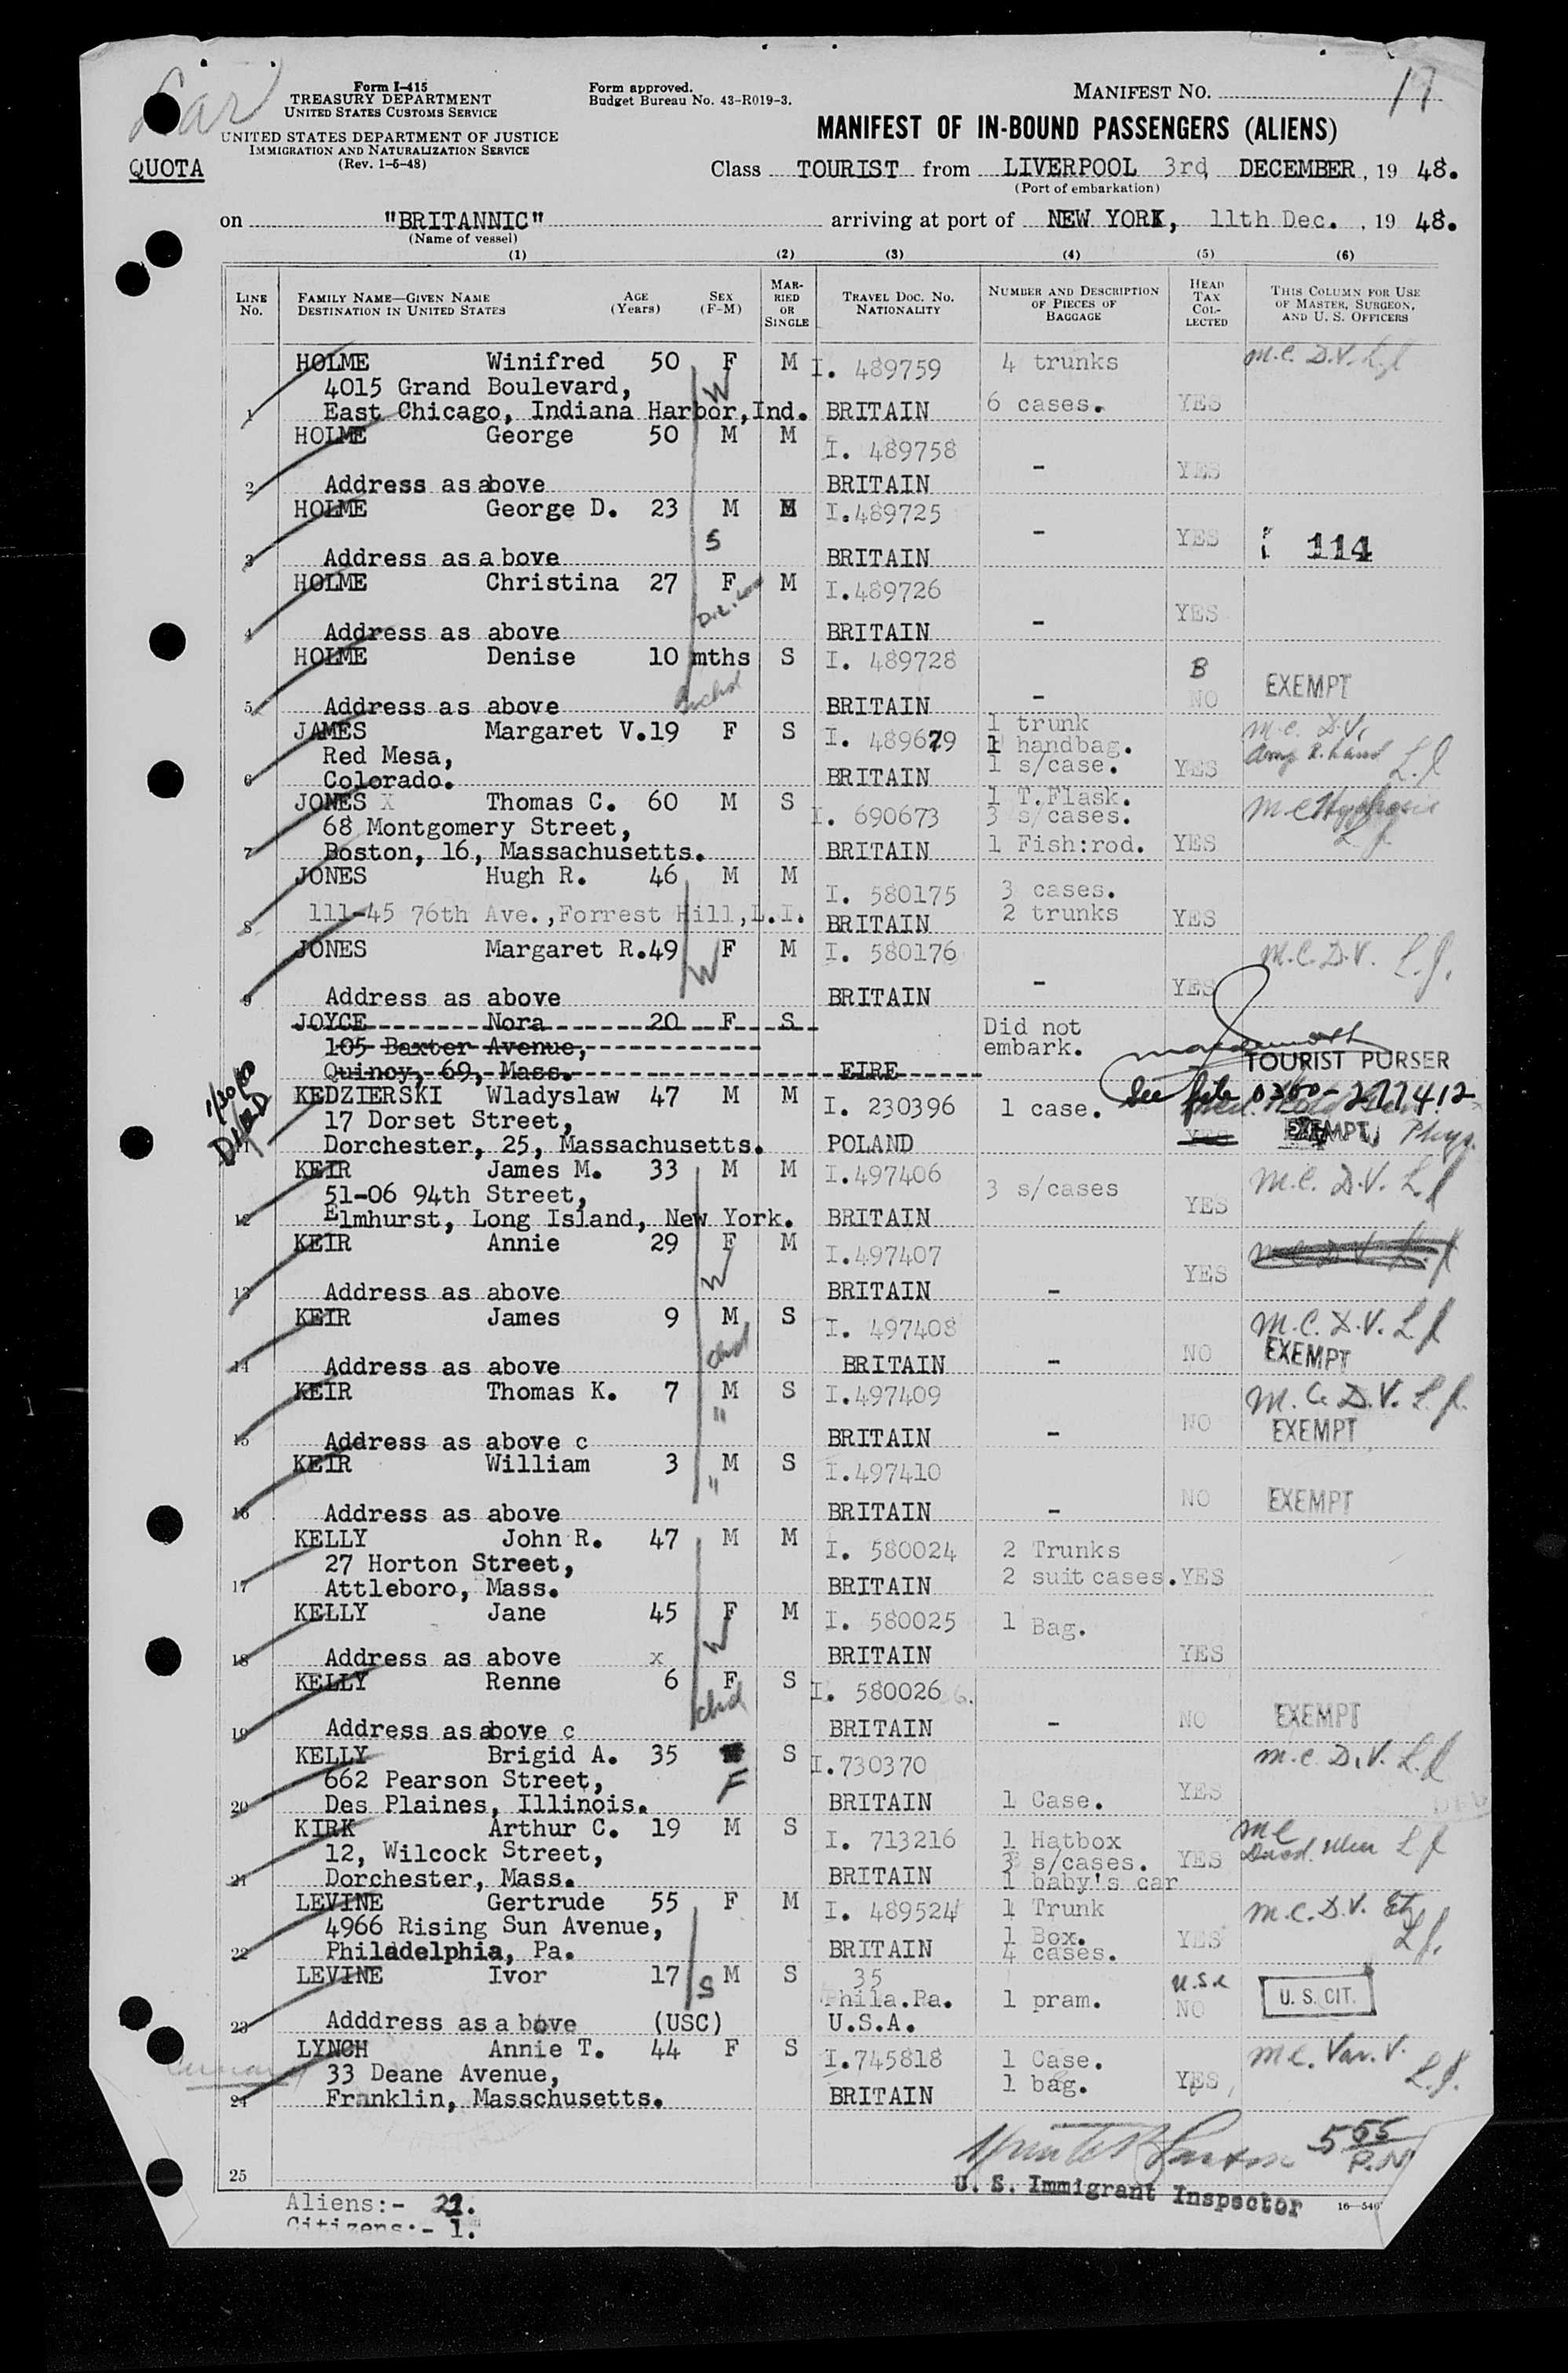 Form I-415
TREASURY DEPARTMENT
UNITED STATES CUSTOMS SERVICE
UNITED STATES DEPARTMENT OF JUSTICE
IMMIGRATION AND NATURALIZATION SERVICE
(Rev. 1-5-48)
QUOTA
Form approved.
Budget Bureau No. 43-R019-3.
MANIFEST NO. 17
MANIFEST OF IN-BOUND PASSENGERS (ALIENS)
Class TOURIST from LIVERPOOL 3rd DECEMBER, 19 48.
(Port of embarkation)
on "BRITANNIC" arriving at port of NEW YORK, 11th Dec., 19 48.
(Name of vessel)
(1) (2) (3) (4) (5) (6)
LINE No. FAMILY NAME—GIVEN NAME DESTINATION IN UNITED STATES AGE (Years) SEX (F-M) MARRIED OR SINGLE TRAVEL DOC. NO. NATIONALITY NUMBER AND DESCRIPTION OF PIECES OF BAGGAGE HEAD TAX COLLECTED THIS COLUMN FOR USE OF MASTER, SURGEON, AND U. S. OFFICERS
HOLME Winifred 50 F M I. 489759 4 trunks M.C. D.V. L.J
4015 Grand Boulevard, W
1 East Chicago, Indiana Harbor, Ind. BRITAIN 6 cases. YES
HOLME George 50 M M I. 489758
2 Address as above BRITAIN - YES
HOLME George D. 23 M M I.489725
3 Address as a bove S BRITAIN - YES 114
HOLME Christina 27 F M I.489726
4 Address as above BRITAIN - YES
HOLME Denise 10 mths S I. 489728 B
5 Address as above BRITAIN - NO EXEMPT
JAMES Margaret V. 19 F S I. 489679 1 trunk M.C. D.V.
Red Mesa, 1 handbag.
6 Colorado. BRITAIN 1 s/case. YES L.J
JONES X Thomas C. 60 M S I. 690673 1 T.Flask.
68 Montgomery Street, 3 s/cases.
7 Boston, 16, Massachusetts. BRITAIN 1 Fish:rod. YES L J
JONES Hugh R. 46 M M I. 580175 3 cases.
8 111-45 76th Ave.,Forrest Hill,L.I. BRITAIN 2 trunks YES
JONES Margaret R. 49 F M I. 580176 M.C. D.V. L.J.
9 Address as above W BRITAIN - YES
JOYCE Nora 20 F S Did not embark.
105 Baxter Avenue,
Quincy, 69, Mass. EIRE TOURIST PURSER
KEDZIERSKI Wladyslaw 47 M M I. 230396 1 case. See file 0300-277412
17 Dorset Street,
11 Dorchester, 25, Massachusetts. POLAND YES EXEMPT
KEIR James M. 33 M M I.497406 3 s/cases M.C. D.V. L.J
51-06 94th Street,
12 Elmhurst, Long Island, New York. BRITAIN YES
KEIR Annie 29 F M I.497407 M.C. D.V. L.J
13 Address as above W BRITAIN - YES
KEIR James 9 M S I. 497408 M.C. D.V. L J
14 Address as above chd BRITAIN - NO EXEMPT
KEIR Thomas K. 7 M S I.497409 M.C. D.V. L.J.
15 Address as above c " BRITAIN - NO EXEMPT
KEIR William 3 M S I.497410
16 Address as above " BRITAIN - NO EXEMPT
KELLY John R. 47 M M I. 580024 2 Trunks
27 Horton Street,
17 Attleboro, Mass. BRITAIN 2 suit cases. YES
KELLY Jane 45 F M I. 580025 1 Bag.
18 Address as above x W BRITAIN YES
KELLY Renne 6 F S I. 580026
19 Address as above c chd BRITAIN - NO EXEMPT
KELLY Brigid A. 35 F S I.730370 M.C. D.V. L.J
662 Pearson Street,
20 Des Plaines, Illinois. BRITAIN 1 Case. YES
KIRK Arthur C. 19 M S I. 713216 1 Hatbox M C
12, Wilcock Street, 3 s/cases. L J
21 Dorchester, Mass. BRITAIN 1 baby's car YES
LEVINE Gertrude 55 F M I. 489524 1 Trunk M.C. D.V.
4966 Rising Sun Avenue, 1 Box. L J.
22 Philadelphia, Pa. BRITAIN 4 cases. YES
LEVINE Ivor 17 S M S 35 U.S.C
Phila.Pa. 1 pram. NO U. S. CIT.
23 Adddress as a bove (USC) U.S.A.
LYNCH Annie T. 44 F S I.745818 1 Case. M.C. Var. V.
33 Deane Avenue, 1 bag. L.J.
24 Franklin, Masschusetts. BRITAIN YES
5 55 P.M
25
U. S. Immigrant Inspector
Aliens:- 22.
Citizens:- 1.